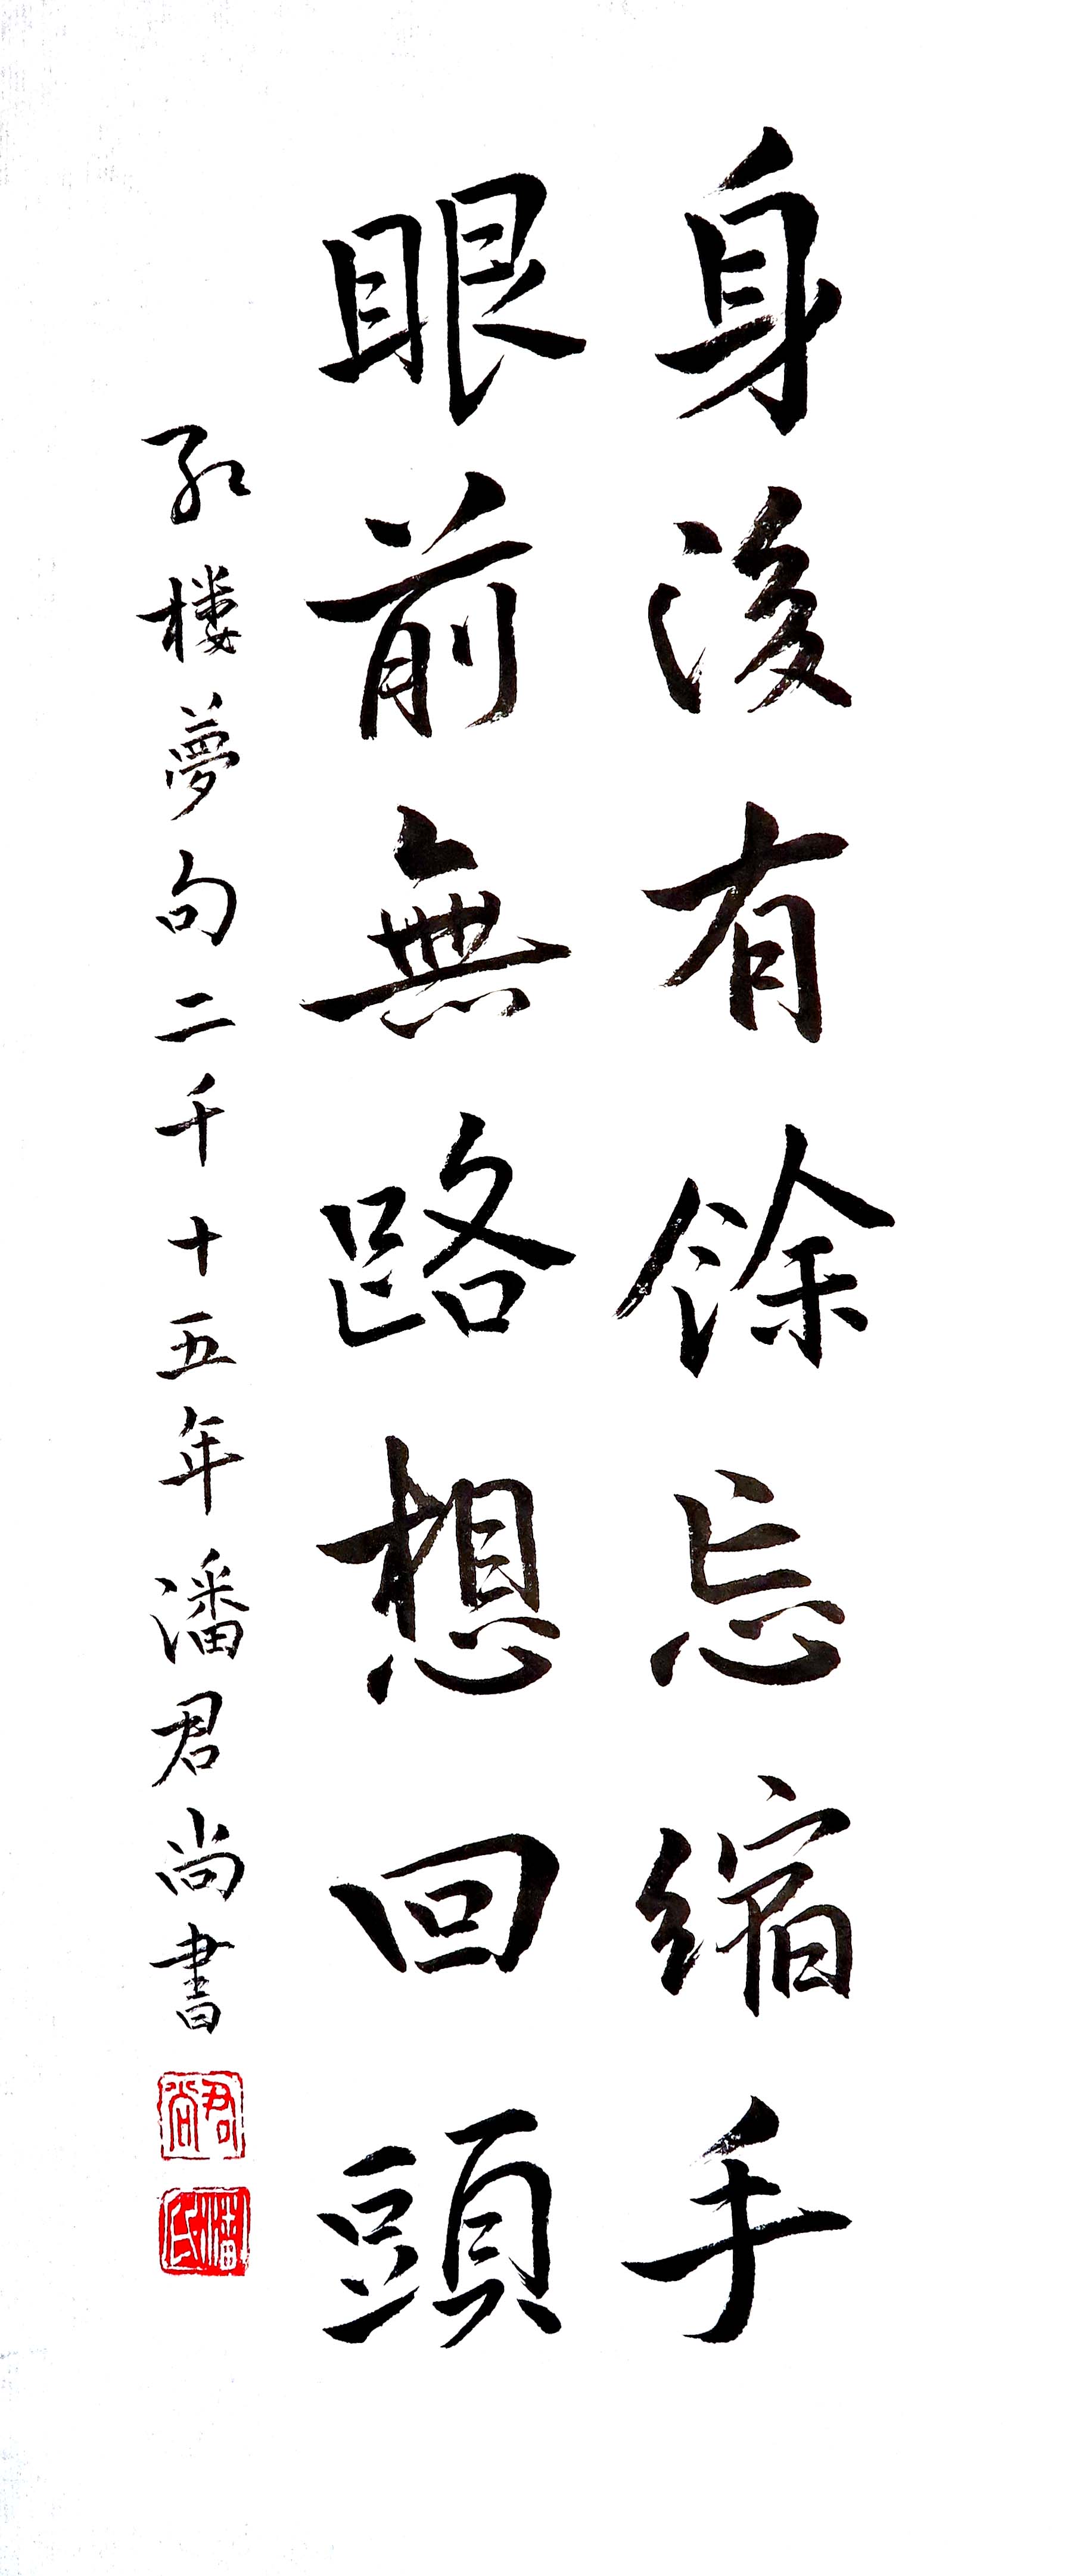 身後有餘忘縮手
眼前無路想回頭
紅樓夢句二千十五年潘君尚書
君尚
潘氏